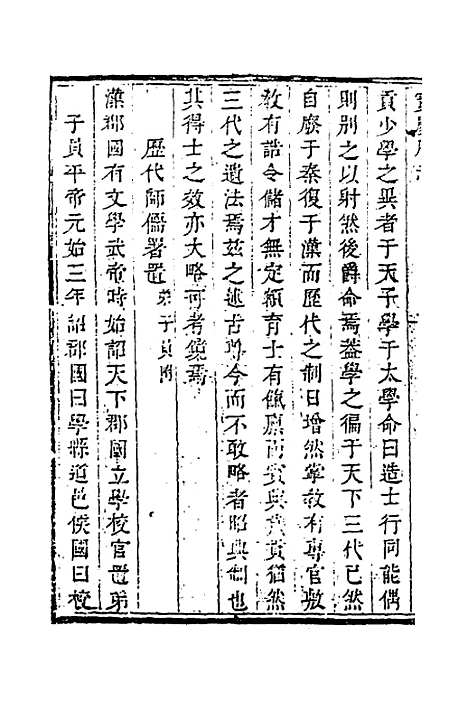 貢少學之異者于天子學于太學命曰造士行同能偶
則別之以射然後爵命焉葢學之徧于天下三代已然
自廢于秦復于漢而歷代之制日增然掌敎有專官敷
敎有誥令儲才無定額育士有餼廩而賓興貢猶然
三代之遺法焉茲之述古尊今而不敢略者昭典制也
其得士之效亦大略可考鏡焉
歷代師儒署置 弟子員附
漢郡國有文學武帝時始詔天下郡國立學校官置弟
子員平帝元始三年詔郡國曰學縣道邑侯國曰校